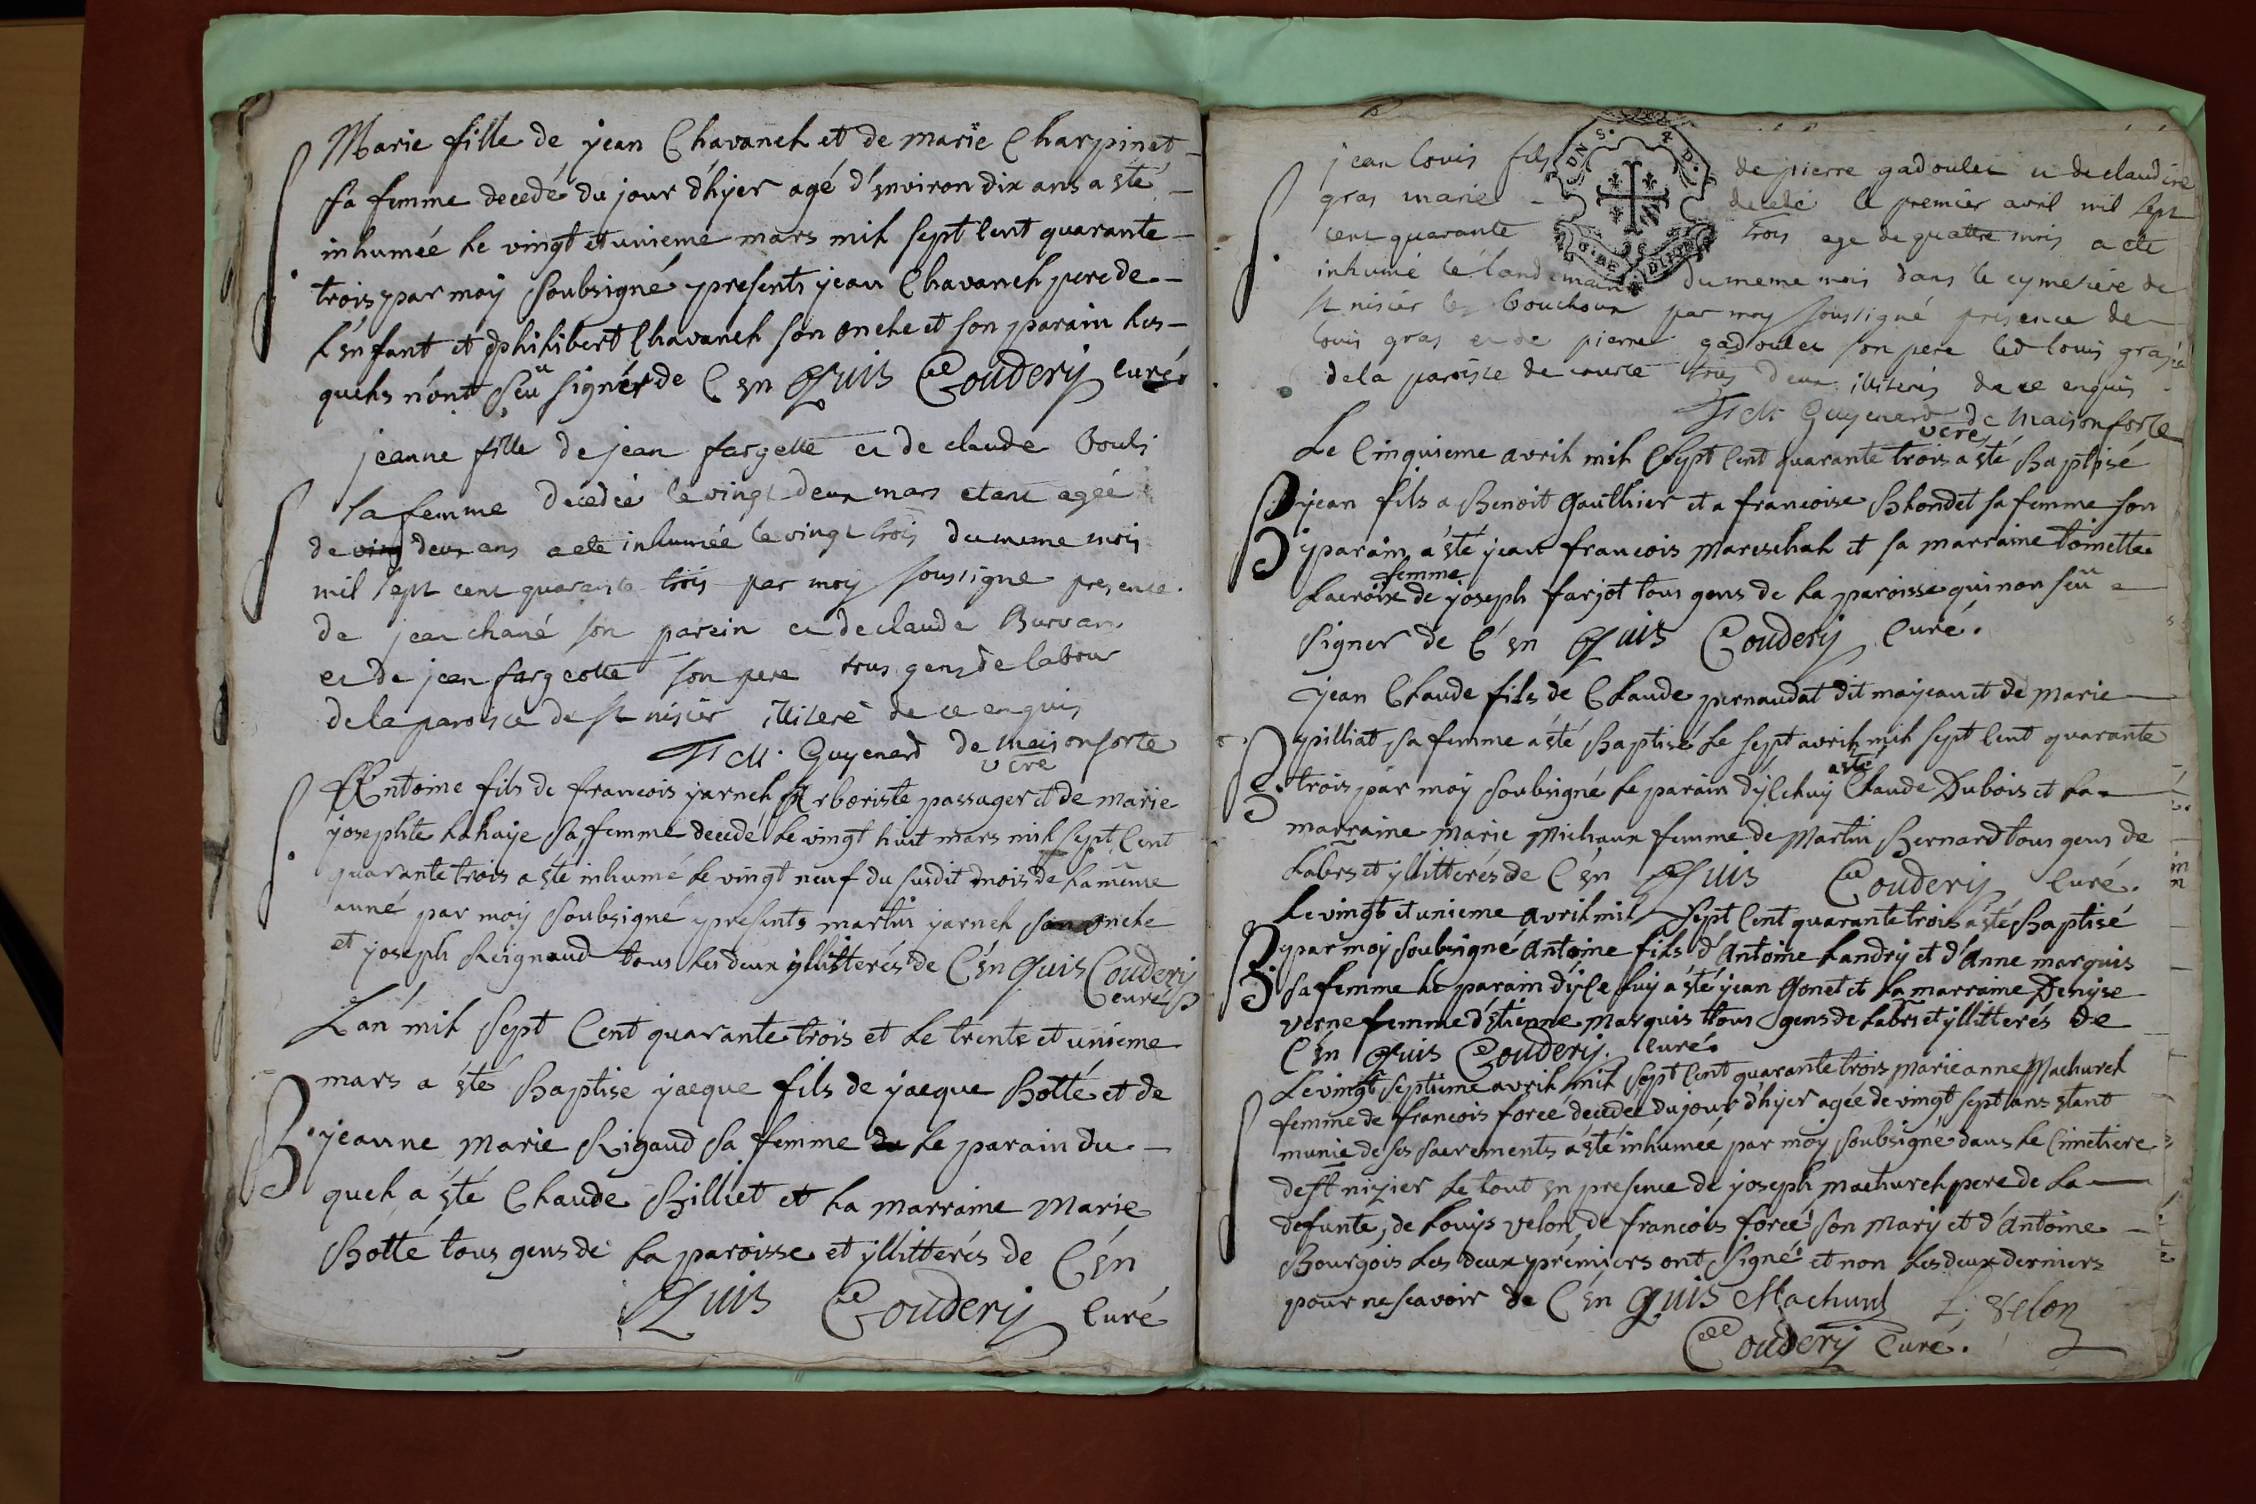 Marie fille de jean Chavanel et de marie Charpinet
sa femme decedé du jour d'hyer agé d'environ dix ans a été
inhumée le vingt et unieme mars mil sept cent quarante
trois par moy soubsigné presents jean Chavanel pere de
l'enfant et philibert Chavanel son oncle et son parain les
quels n'ont seu signér de C en Quis Couderj curé
jeanne fille de jean fargette et de claude
sa femme decedée le vingt deux mars etant agée
de deux ans a eté inhumée le vingt trois du meme mois
mil sept cent quarante trois par moy soussigne presence
de jean chané son parein et de claude
et de jean fargeotte son pere tous gens de labour
de la paroisce de st nisier illiteré de ce enquis
F M. Guyenard de maisonforte
vcre
Antoine fils de francois jarnel Arboriste passager et de marie
josephte lahaije sa femme decedé le vingt huit mars mil sept cent
quarante trois a été inhumé le vingt neuf du susdit mois de la même
anné par moy soubsigné presents martin jarnel son oncle
et joseph Reignaud tous les deux yllitterés de C'en Quis Couderj
curé
L'an mil sept Cent quarante trois et le trente et unieme
mars a été Baptise jacque fils de jacque Botté et de
B. jeanne marie Rigaud sa femme le parain du
quel a été Claude Billiet et la marraine Marie
Botté tous gens de la paroisse et yllitterés de C'én
Quis Couderj Curé
jean louis fils de pierre gadoulet et de claudine
gras marié decedé le premier avril mil sept
cent quarante trois age de quattre mois a eté
inhumé le landemain du meme mois dans le cymetiere de
st nisier le bouchoux par moy soussigné presence de
louis gras et de pierre gadoulet son pere led louis gras
de la paroisce de tous deux illiterés de ce enquis
F M. Guyenard de maisonforte
vcre
Le Cinquieme avril mil sept Cent quarante trois a été Baptisé
B jean fils a Benoit Gauthier et a francoise Blondet sa femme son
parain a été jean francois Mareschal et sa marraine toinette
femme
Lacroix de joseph farjot tous gens de la paroisse qui non seu
signer de C'en Quis Couderj Curé.
jean Claude fils de Claude pernaudat dit majean et de Marie
B. pilliat sa femme a été Baptisé le sept avril mil sept cent quarante
a été
trois par moy soubsigné le parain d'ylcluy Claude Dubois et la
marraine Marie Michaux femme de Martin Bernard tous gens de
labrs et yllitterés de C'én Quis Couderj Curé.
Le vingt et unieme avril mil sept Cent quarante trois a été Baptisé
B. par moy soubsigné Antoine fils d'Antoine Landry et d'Anne marquis
sa femme le parain d'yceluy a été jean Gonet et la marraine Denyse
verne femme d'étienne Marquis tous gens de labrs et yllitterés de
C'en Quis Couderj. Curé.
Le vingt septieme avril mil sept Cent quarante trois marieanne Machurel
femme de francois forcé decedée du jour d'hyer agée de vingt sept ans étant
munie de ses sacrements a été inhumeé par moy soubsigné dans le Cimetiere
de St nizier le tout en presence de joseph machurel pere de la
defunte, de Louys velon, de francois forcé son mary et d'Antoine
Bourgois les deux premiers ont signé et non les deux derniers
pour ne scavoir de C'en Quis Machurel L; velon
Couderj Curé.